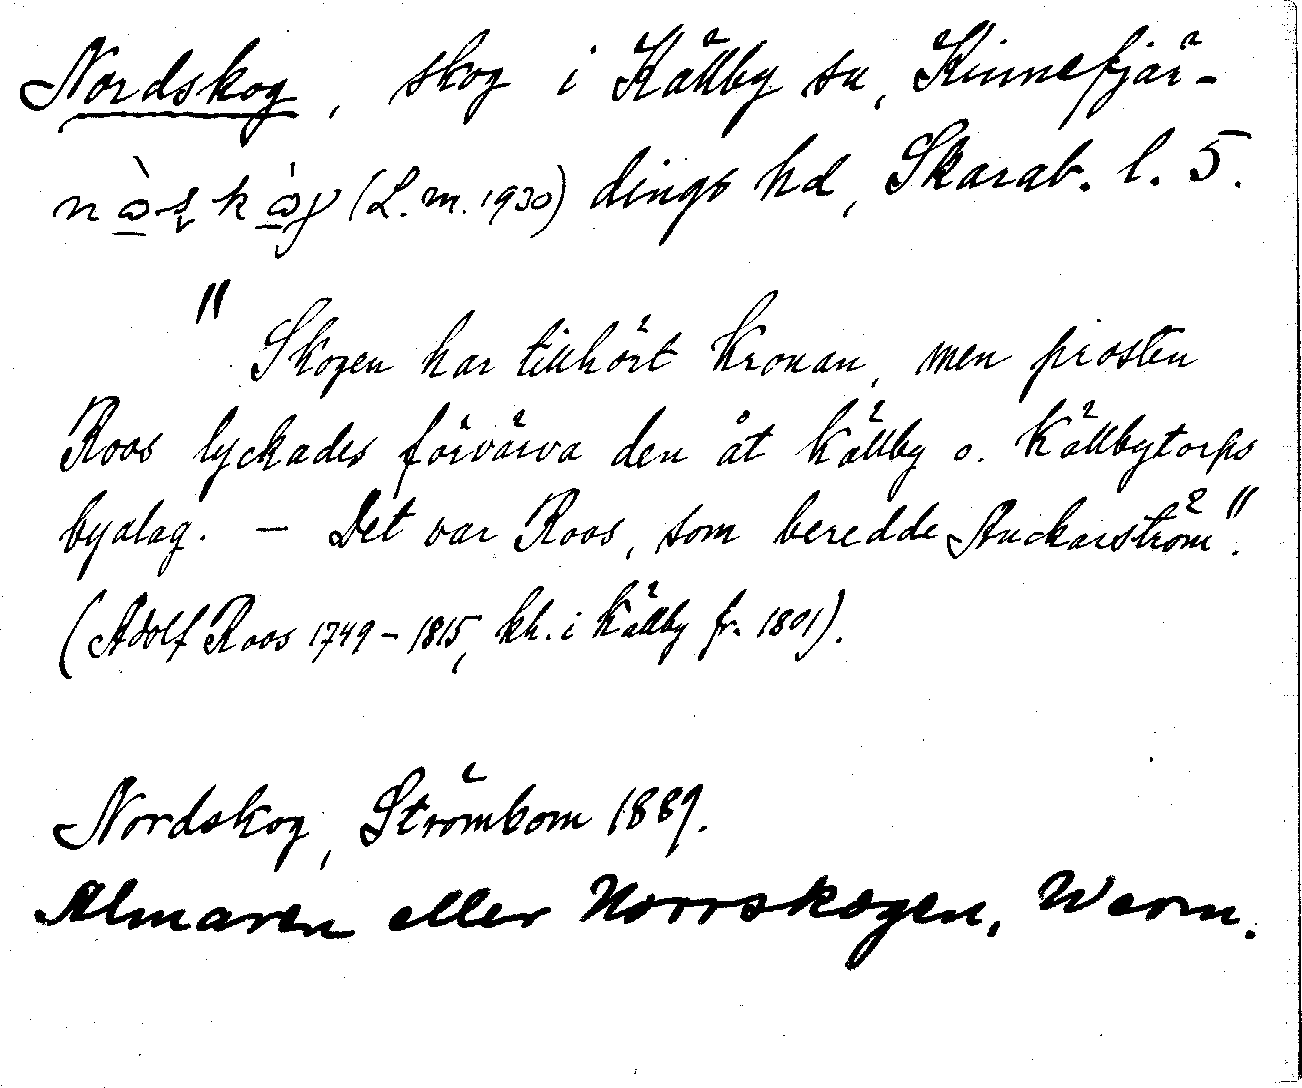 Nordskog, skog i Källby sn, Kinnefjär-
(L.m. 1930) dings hd, Skarab. l. 5.
" Skogen har tillhört kronan, men prosten
Roos lyckades förvärva den åt Källby o. Källbytorps
byalag. – Det var Roos, som beredde Anckarström".
(Adolf Roos 1749–1815, kh. i Källby fr. 1801).
Nordskog, Strömbom 1889.
Almaren eller Norrskogen, Warm.